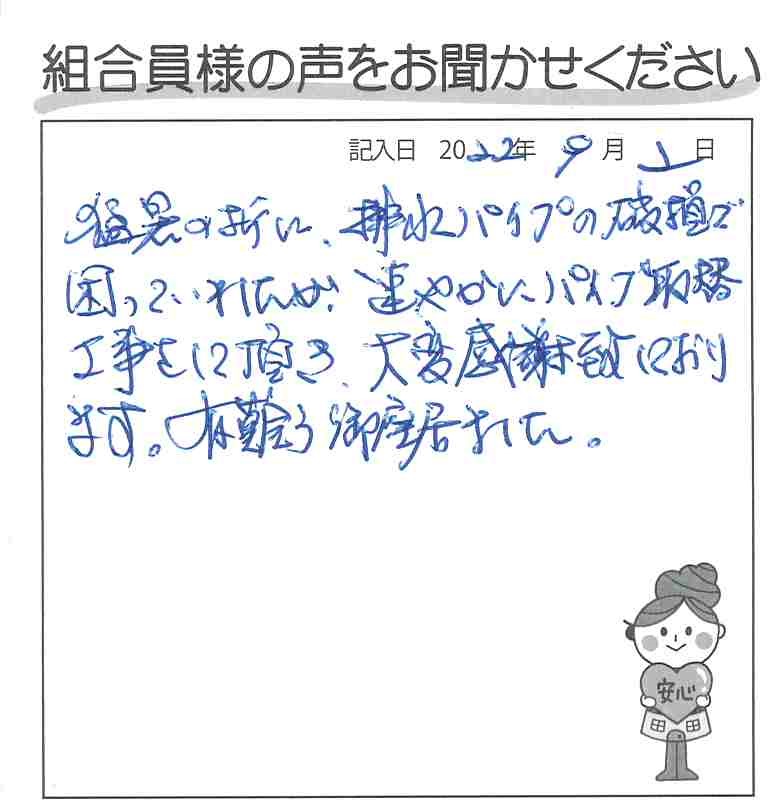 組合員様の声をお聞かせください
記入日 2022年 9月 1日
猛暑の折に、排水パイプの破損で
困っていましたが、速やかにパイプ取替
工事をして頂き、大変感謝致しており
ます。有難う御座居ました。
安心